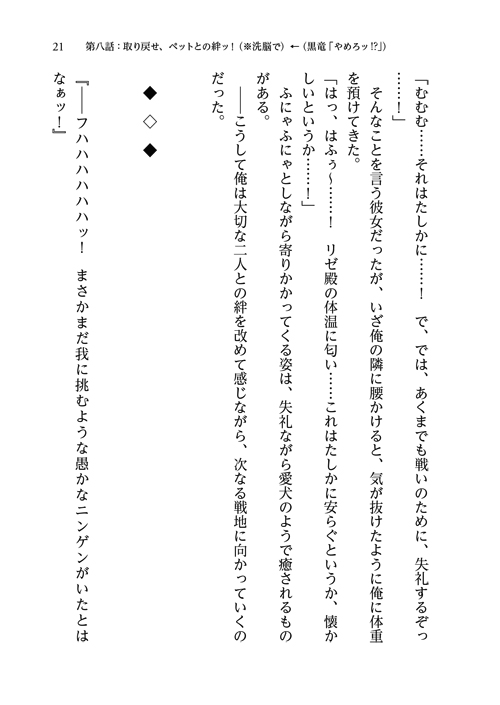 21　第八話：取り戻せ、ペットとの絆ッ！（※洗脳で）←（黒竜「やめろッ!?」）
「むむむ……それはたしかに……！　で、では、あくまでも戦いのために、失礼するぞっ
……！」
　そんなことを言う彼女だったが、いざ俺の隣に腰かけると、気が抜けたように俺に体重
を預けてきた。
「はっ、はふぅ～……！　リゼ殿の体温に匂い……これはたしかに安らぐというか、懐か
しいというか……！」
　ふにゃふにゃとしながら寄りかかってくる姿は、失礼ながら愛犬のようで癒されるもの
がある。
　――こうして俺は大切な二人との絆を改めて感じながら、次なる戦地に向かっていくの
だった。
◆　◇　◆
『――フハハハハハハッ！　まさかまだ我に挑むような愚かなニンゲンがいたとは
なぁッ！』